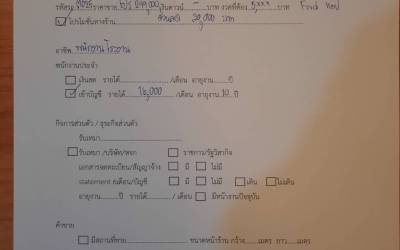 รหัสรถ 9035 ราคาขาย โปร 299,000 เงินดาวน์ - บาท งวดที่ต้อง 5,xxx บาท Ford New
โปรโมชั่นทางร้าน ส่วนลด 20,000 บาท
อาชีพ พนักงานโรงงาน
พนักงานประจำ
เงินสด รายได้ /เดือน อายุงาน ปี
เข้าบัญชี รายได้ 12,000 /เดือน อายุงาน 10 ปี
กิจการส่วนตัว / ธุรกิจส่วนตัว
รับเหมา
รับเหมา /บริษัท/หจก ราชการ/รัฐวิสาหกิจ
เอกสารจดทะเบียน/สัญญาจ้าง มี ไม่มี
statement 6เดือน/บัญชี มี ไม่มี เดิน ไม่เดิน
อายุงาน ปี รายได้ / เดือน มีหน้างานปัจจุบัน
ค้าขาย
มีสถานที่ขาย ขนาดหน้าร้าน กว้าง เมตร ยาว เมตร